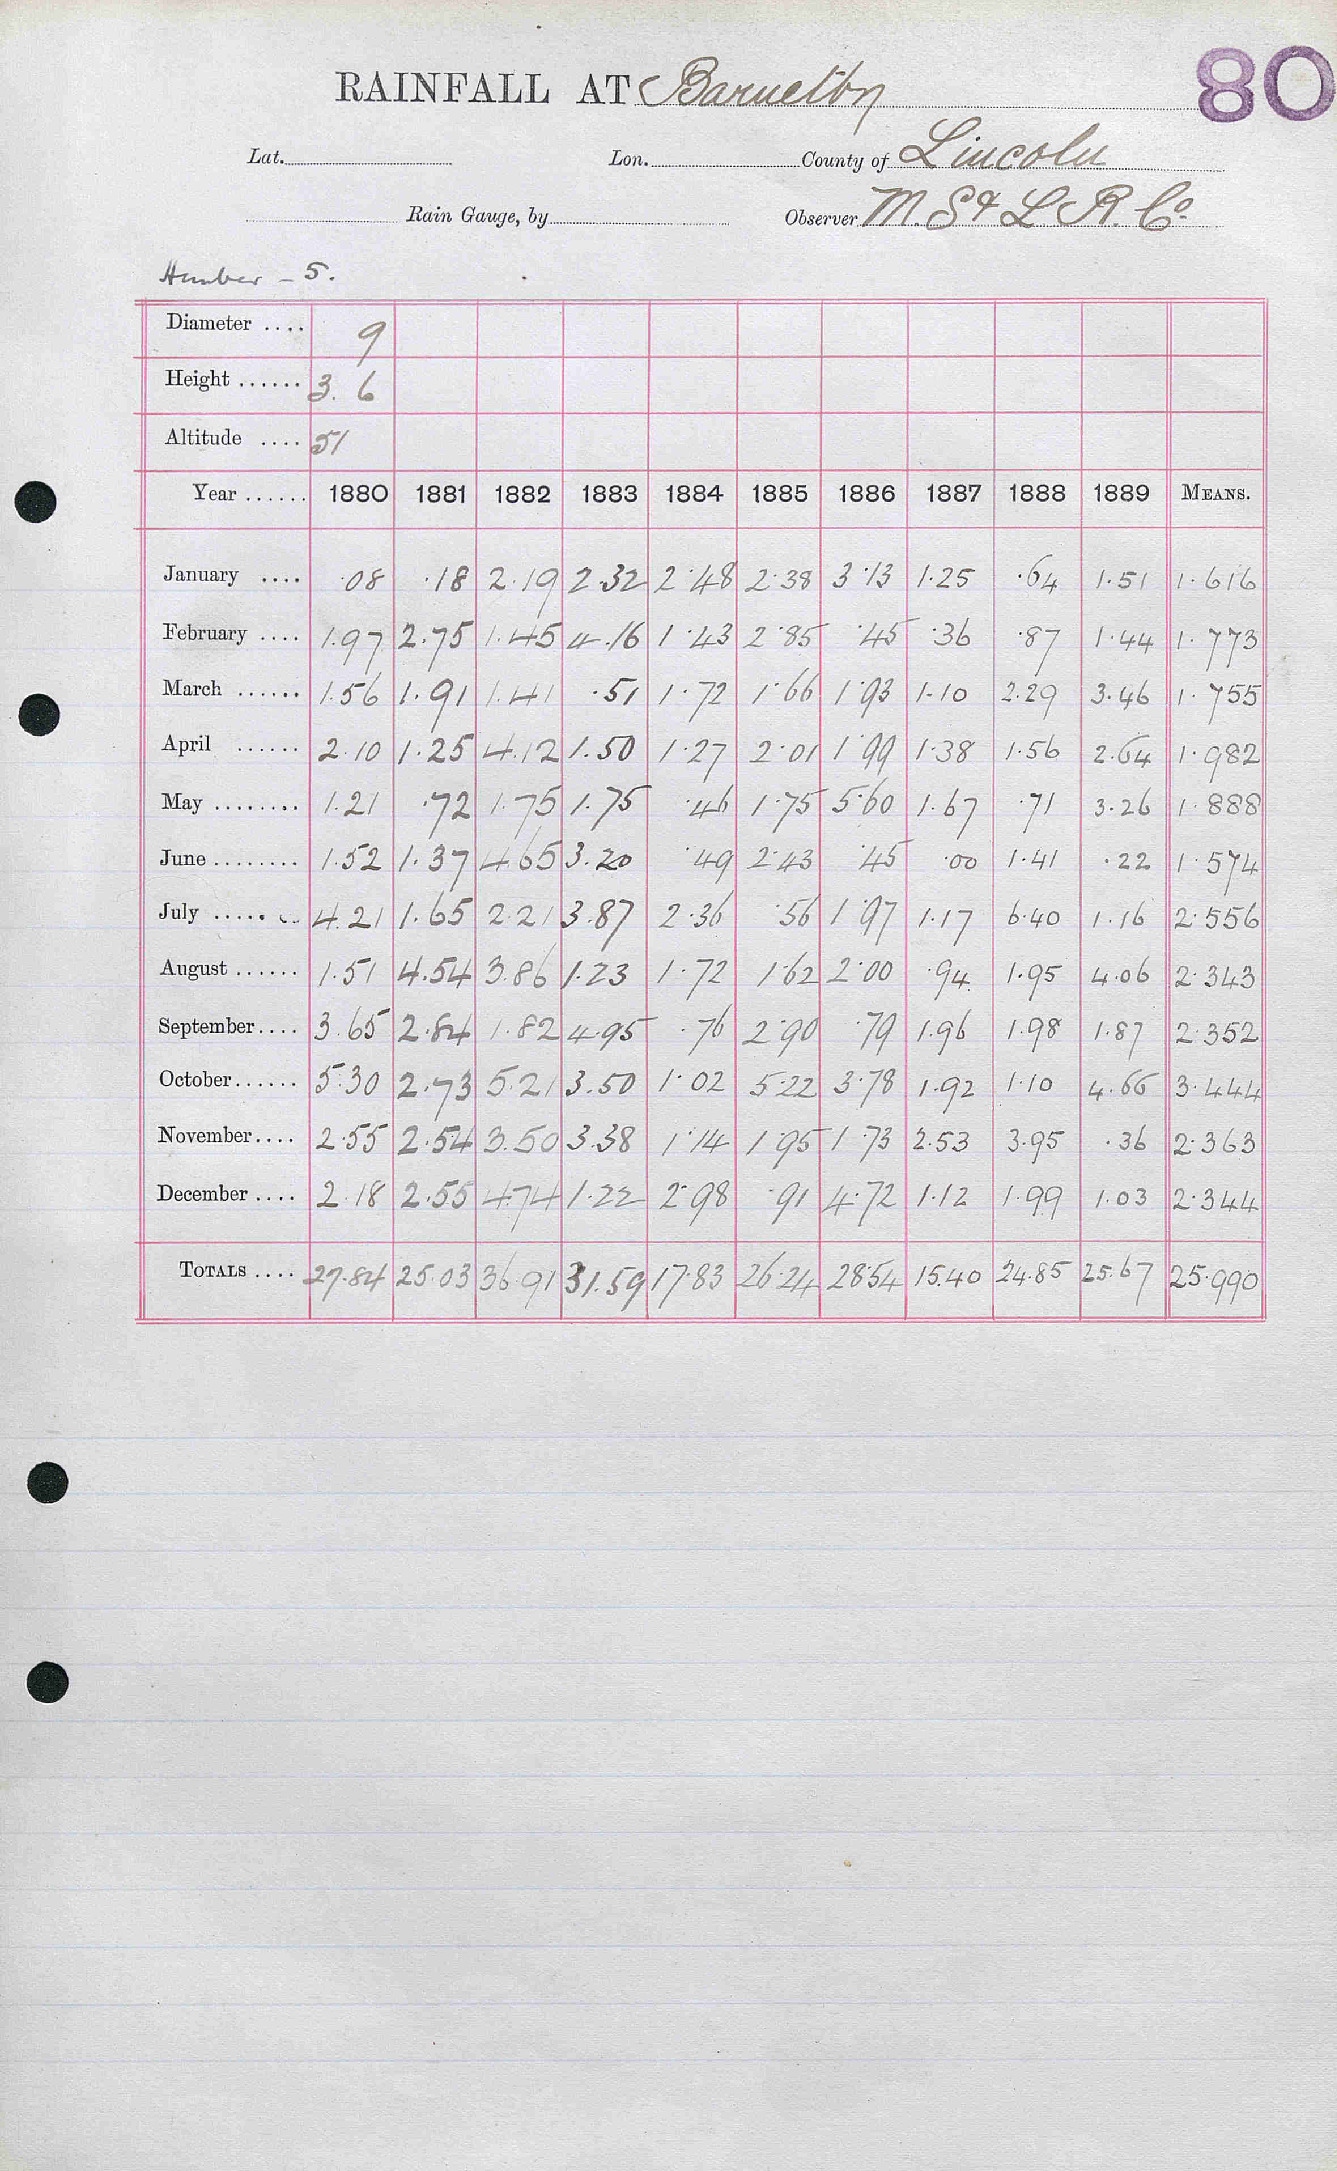 80
RAINFALL AT Barnetby
Lat. Lon. County of Lincoln
Rain Gauge, by Observer M. S & L R. Co.
Humber - 5.
Diameter .... 9
Height ...... 3. 6
Altitude .... 51
Year ...... 1880 1881 1882 1883 1884 1885 1886 1887 1888 1889 MEANS.
January .... .08 .18 2.19 2.32 2.48 2.38 3.13 1.25 .64 1.51 1.616
February .... 1.97 2.75 1.45 4.16 1.43 2.85 .45 .36 .87 1.44 1.773
March ...... 1.56 1.91 1.41 .51 1.72 1.66 1.93 1.10 2.29 3.46 1.755
April ...... 2.10 1.25 4.12 1.50 1.27 2.01 1.99 1.38 1.56 2.64 1.982
May ........ 1.21 .72 1.75 1.75 .46 1.75 5.60 1.67 .71 3.26 1.888
June ........ 1.52 1.37 4.65 3.20 .49 2.43 .45 .00 1.41 .22 1.574
July ........ 4.21 1.65 2.21 3.87 2.36 .56 1.97 1.17 6.40 1.16 2.556
August ...... 1.51 4.54 3.86 1.23 1.72 1.62 2.00 .94 1.95 4.06 2.343
September .... 3.65 2.84 1.82 4.95 .76 2.90 .79 1.96 1.98 1.87 2.352
October ...... 5.30 2.73 5.21 3.50 1.02 5.22 3.78 1.92 1.10 4.66 3.444
November .... 2.55 2.54 3.50 3.38 1.14 1.95 1.73 2.53 3.95 .36 2.363
December .... 2.18 2.55 4.74 1.22 2.98 .91 4.72 1.12 1.99 1.03 2.344
TOTALS .... 27.84 25.03 36.91 31.59 17.83 26.24 28.54 15.40 24.85 25.67 25.990